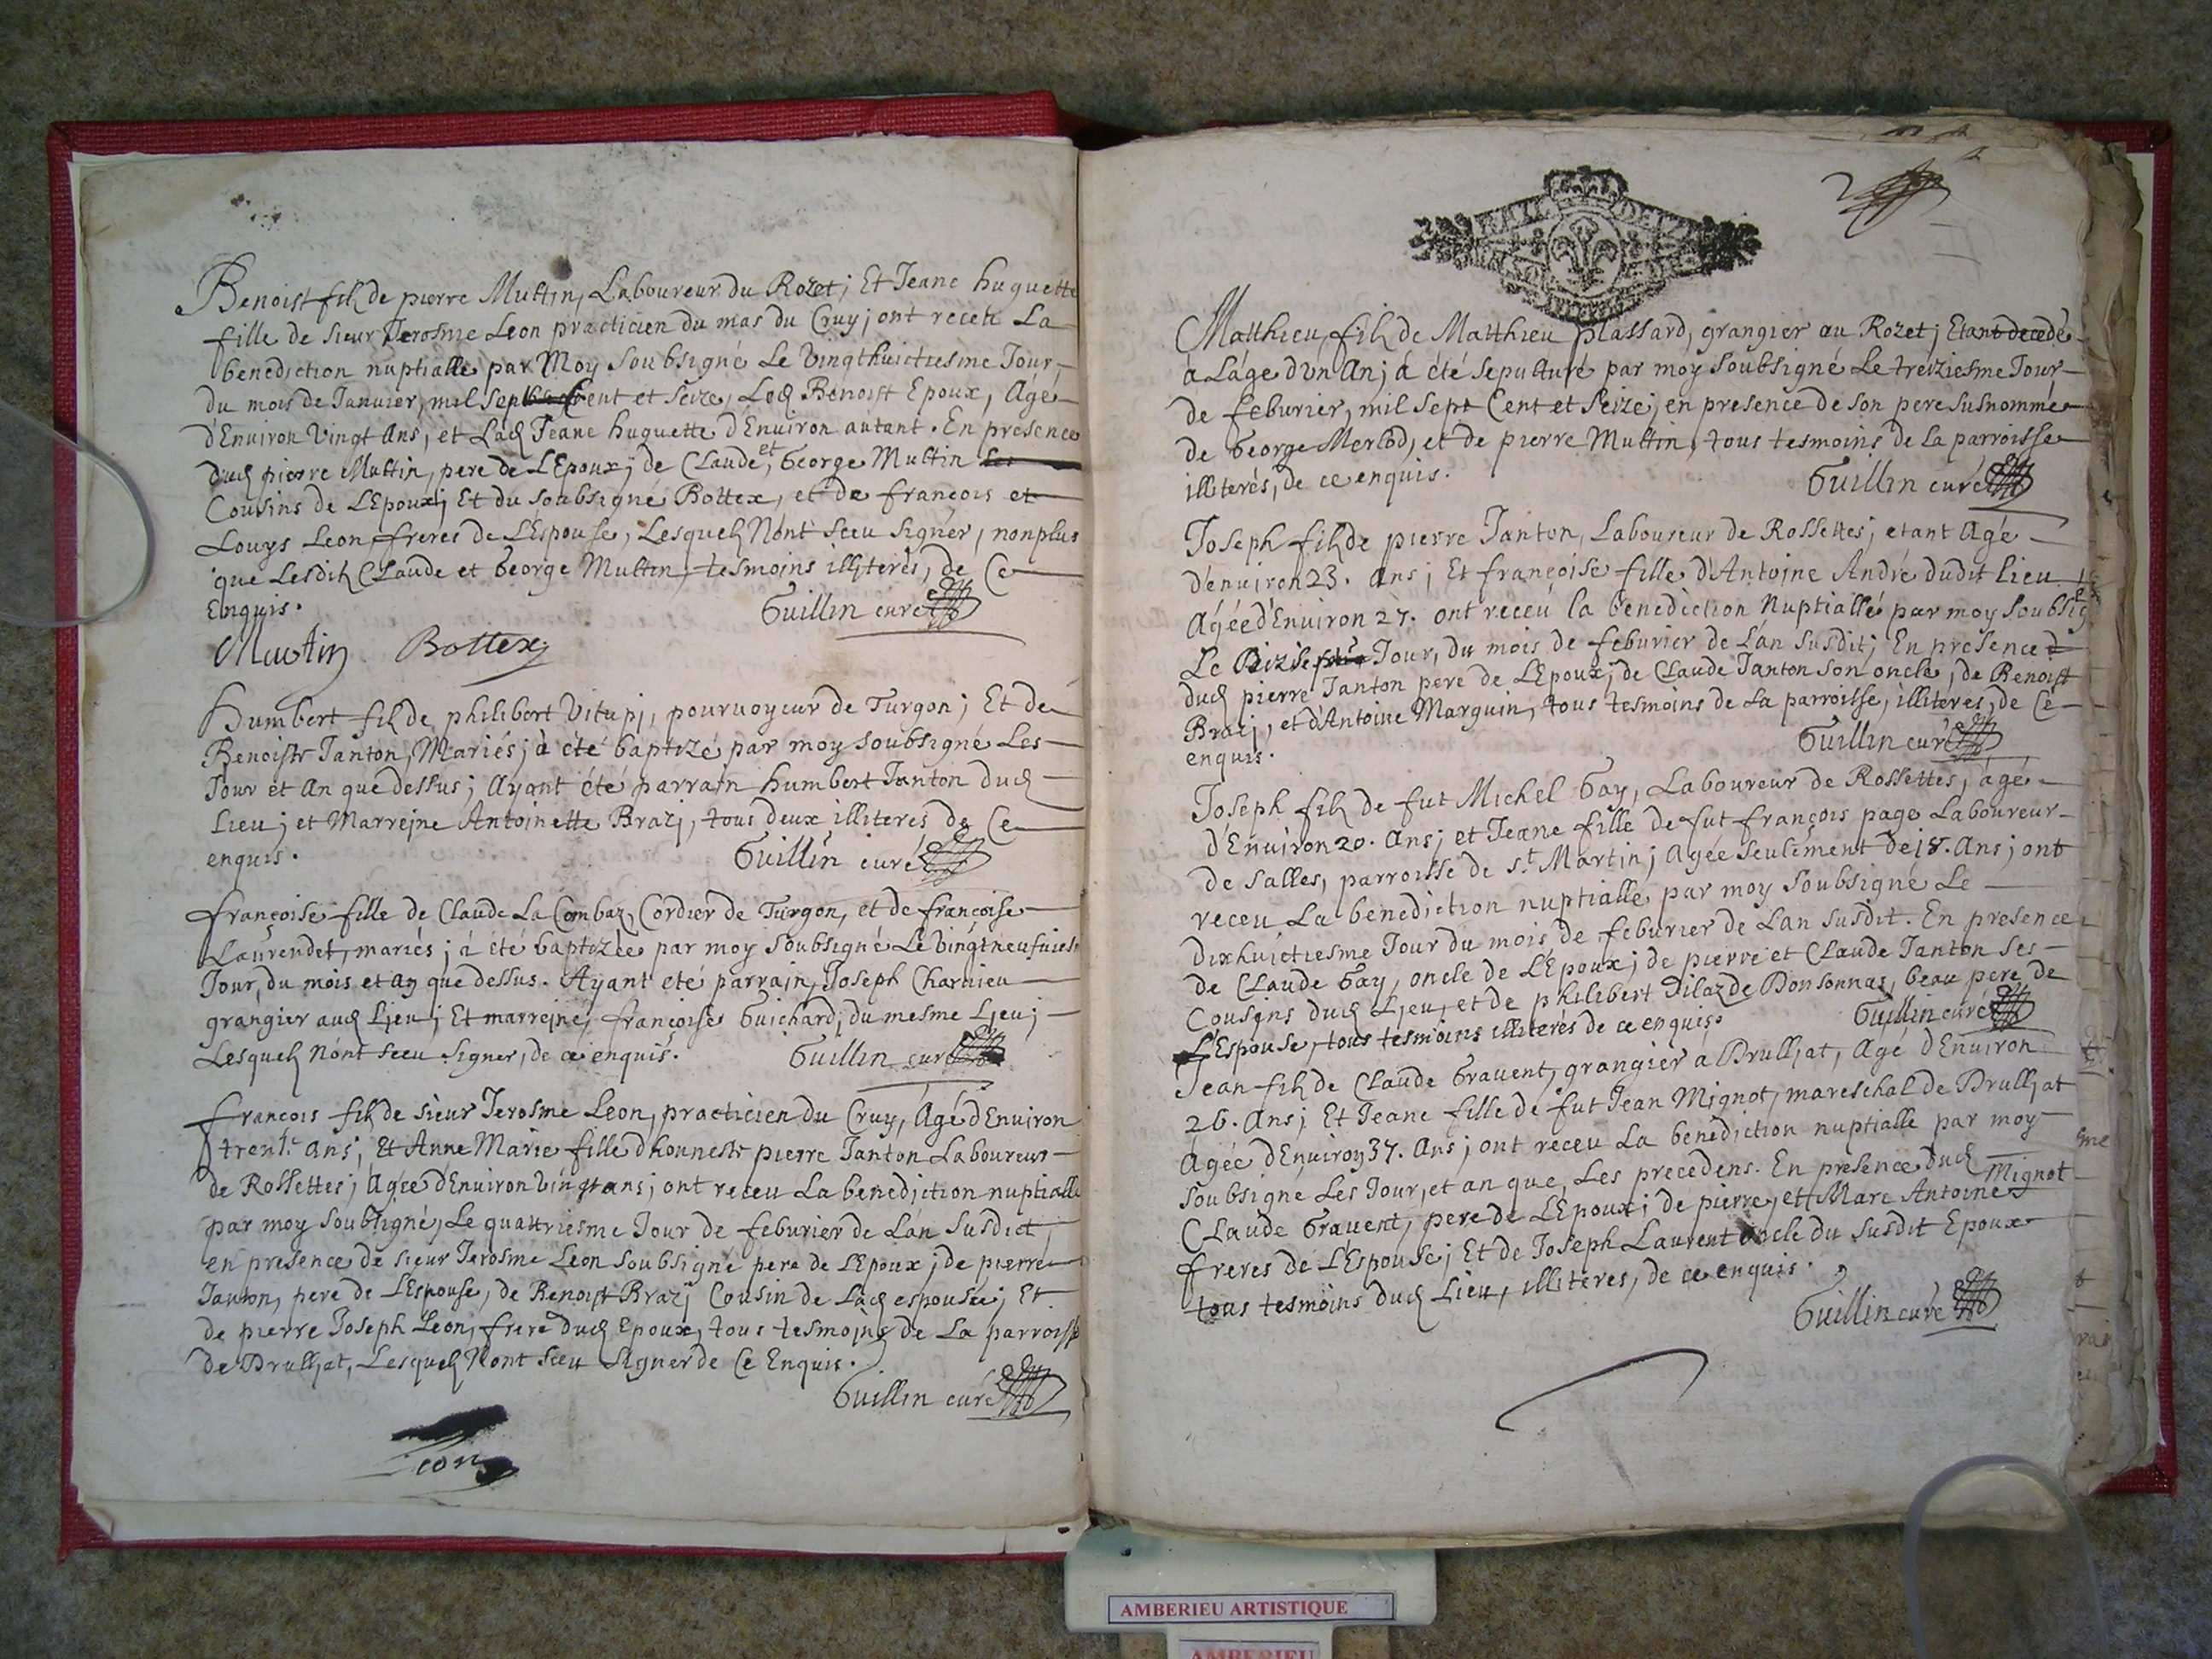 Benoist fils de pierre Muttin, Laboureur du Rozet; Et Jeane huguette
fille de sieur Jerosme Leon practicien du mas du Cruy; ont receu La
benediction nuptialle par Moy Soubsigné Le Vingthuictiesme Jour
du mois de Janvier, mil Sept Cent et Seize, Led Benoist Epoux, Agé
d'Environ Vingt Ans, et Lad Jeane huguette d'Environ autant. En presence
dud pierre Muttin, pere de L'Epoux; de Claude, et George Muttin
Cousins de L'Epoux; Et du Soubsigné Bottex, et de françois et
Louys Leon freres de L'Espouse, Lesquels N'ont Sceu Signer, nonplus
que Lesdits Claude et George Muttin, tesmoins illiterés, de Ce
Enquis. Guillin curé
Muttin Bottex
Humbert fils de philibert Vitupj, pourvoyeur de Turgon; Et de
Benoiste Janton, Mariés; à été baptizé par moy Soubsigné Les
Jour et An que dessus; Ayant été parrain humbert Janton dud
Lieu; et Marrejne Antoinette Brazj, tous deux illiterés de Ce
enquis. Guillin curé
françoise fille de Claude La Combaz, Cordier de Turgon, et de françoise
Laurendet, mariés; à été baptizée par moy Soubsigné Le Vingtneufuiesm
Jour, du mois et an que dessus. Ayant été parrajn, Joseph Charnieu
grangier aud Ljeu; Et marrejne, françoise Guichard; du mesme Ljeu;
Lesquels N'ont sceu Signer, de ce enquis. Guillin curé
françois fils de sieur Jerosme Leon, practicien du Cruy, Agé d'Environ
trente ans; Et Anne Marie fille d'honneste pierre Janton Laboureur
de Rossettes; Agée d'Environ Vingt ans; ont receu La benediction nuptialle
par moy Soubsigné, Le quattriesme Jour de feburier de L'an Susdict;
en presence de sieur Jerosme Leon Soubsigné pere de L'Epoux; de pierre
Janton, pere de L'Espouse, de Renoist Brazj Cousin de Lad espousée; Et
de pierre Joseph Leon, frere dud Epoux, tous tesmoins de La parroisse
de Drulljat, Lesquels N'ont Sceu Signer de Ce Enquis.
Guillin curé
Leon
2
Matthieu, fils de Matthieu plassard, grangier au Rozet; Etant decedé
à L'age d'un An; à été Sepulturé par moy Soubsigné Le treiziesme Jour
de feburier, mil Sept Cent et Seize; en presence de son pere Susnommé
de George Merlod, et de pierre Muttin, tous tesmoins de la parroisse
illiterés, de ce enquis. Guillin curé
Joseph fils de pierre Janton, Laboureur de Rossettes; etant Agé
d'environ 23. ans; Et françoise fille d'Antoine André dudit Lieu
Agée d'Environ 27. ont receu la benediction Nuptiallé par moy Soubsig
Le Jour, du mois de feburier de L'an Susdit; En presence
dud pierre Janton pere de L'Epoux; de Claude Janton son oncle; de Renoist
Brazj, et d'Antoine Marguin, tous tesmoins de La parroisse, illiterés, de Ce
enquis. Guillin curé
Joseph fils de fut Michel Gay, Laboureur de Rossettes, agé
d'Environ 20. Ans; et Jeane fille de fut françois page Laboureur
de Salles, parroisse de St Martin; Agée Seulement de 18. Ans; ont
receu La benediction nuptialle, par moy Soubsigné Le
dixhuictiesme Jour du mois de feburier de Lan Susdit. En presence
de Claude Gay, oncle de L'Epoux; de pierre et Claude Janton Ses
Cousins dud Ljeu, et de philibert Dilaz de Donsonnas, beau pere de
L'Espouse, tous tesmoins illiterés de ce enquis. Guillin curé
Jean fils de Claude Gravent, grangier a Drulljat, Agé d'Environ
26. Ans; Et Jeane fille de fut Jean Mignot, mareschal de Drulljat
Agée d'Environ 37. Ans; ont receu La benediction nuptialle par moy
Soubsigné Les Jour, et an que, Les precedens. En presence dud
Claude Gravent, pere de L'Epoux; de pierre, et Marc Antoine Mignot
freres de L'Espouse; Et de Joseph Laurent oncle du Susdit Epoux
tous tesmoins dud Lieu, illiterés, de ce enquis.
Guillin curé
AMBERIEU ARTISTIQUE
AMBERIEU